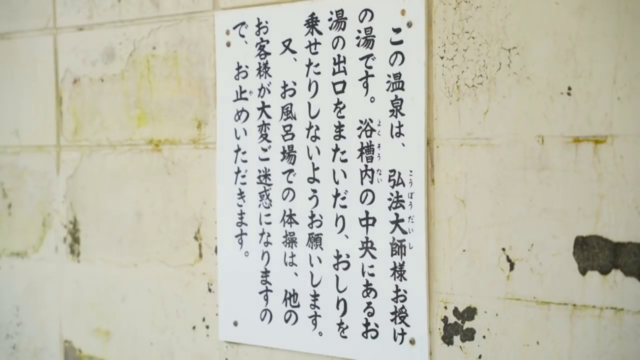 この温泉は、弘法大師様お授け
の湯です。浴槽内の中央にあるお
湯の出口をまたいだり、おしりを
乗せたりしないようお願いします。
又、お風呂場での体操は、他の
お客様が大変ご迷惑になりますの
で、お止めいただきます。